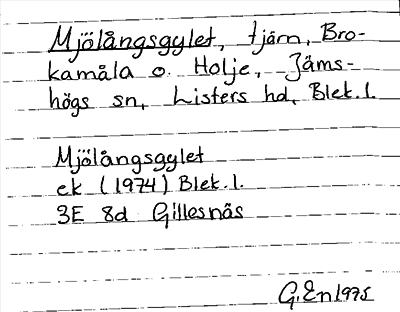 Mjölångsgylet, tjärn, Bro-
kamåla o. Holje, Jäms-
högs sn, Listers hd, Blek. l.
Mjölångsgylet
ek (1974) Blek. l.
3E 8d Gillesnäs
G. En 1975